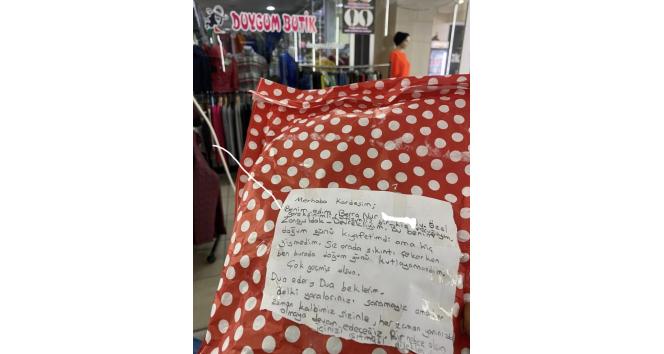 DUYGUM BUTİK
Merhaba Kardeşim;
Benim adım Berra Nur
Zonguldak - Devrekliyim. Bu benim
doğum günü kıyafetimdi ama hiç
giymedim. Siz orada sıkıntı çekerken
ben burada doğum günü kutlayamazdım.
Çok geçmiş olsun.
Dua eder, Dua beklerim.
Belki yaralarınızı saramayız ama
zaman kalbimiz sizinle, her zaman yanınızda
olmaya devam edeceğiz.
içinizi ısıtması